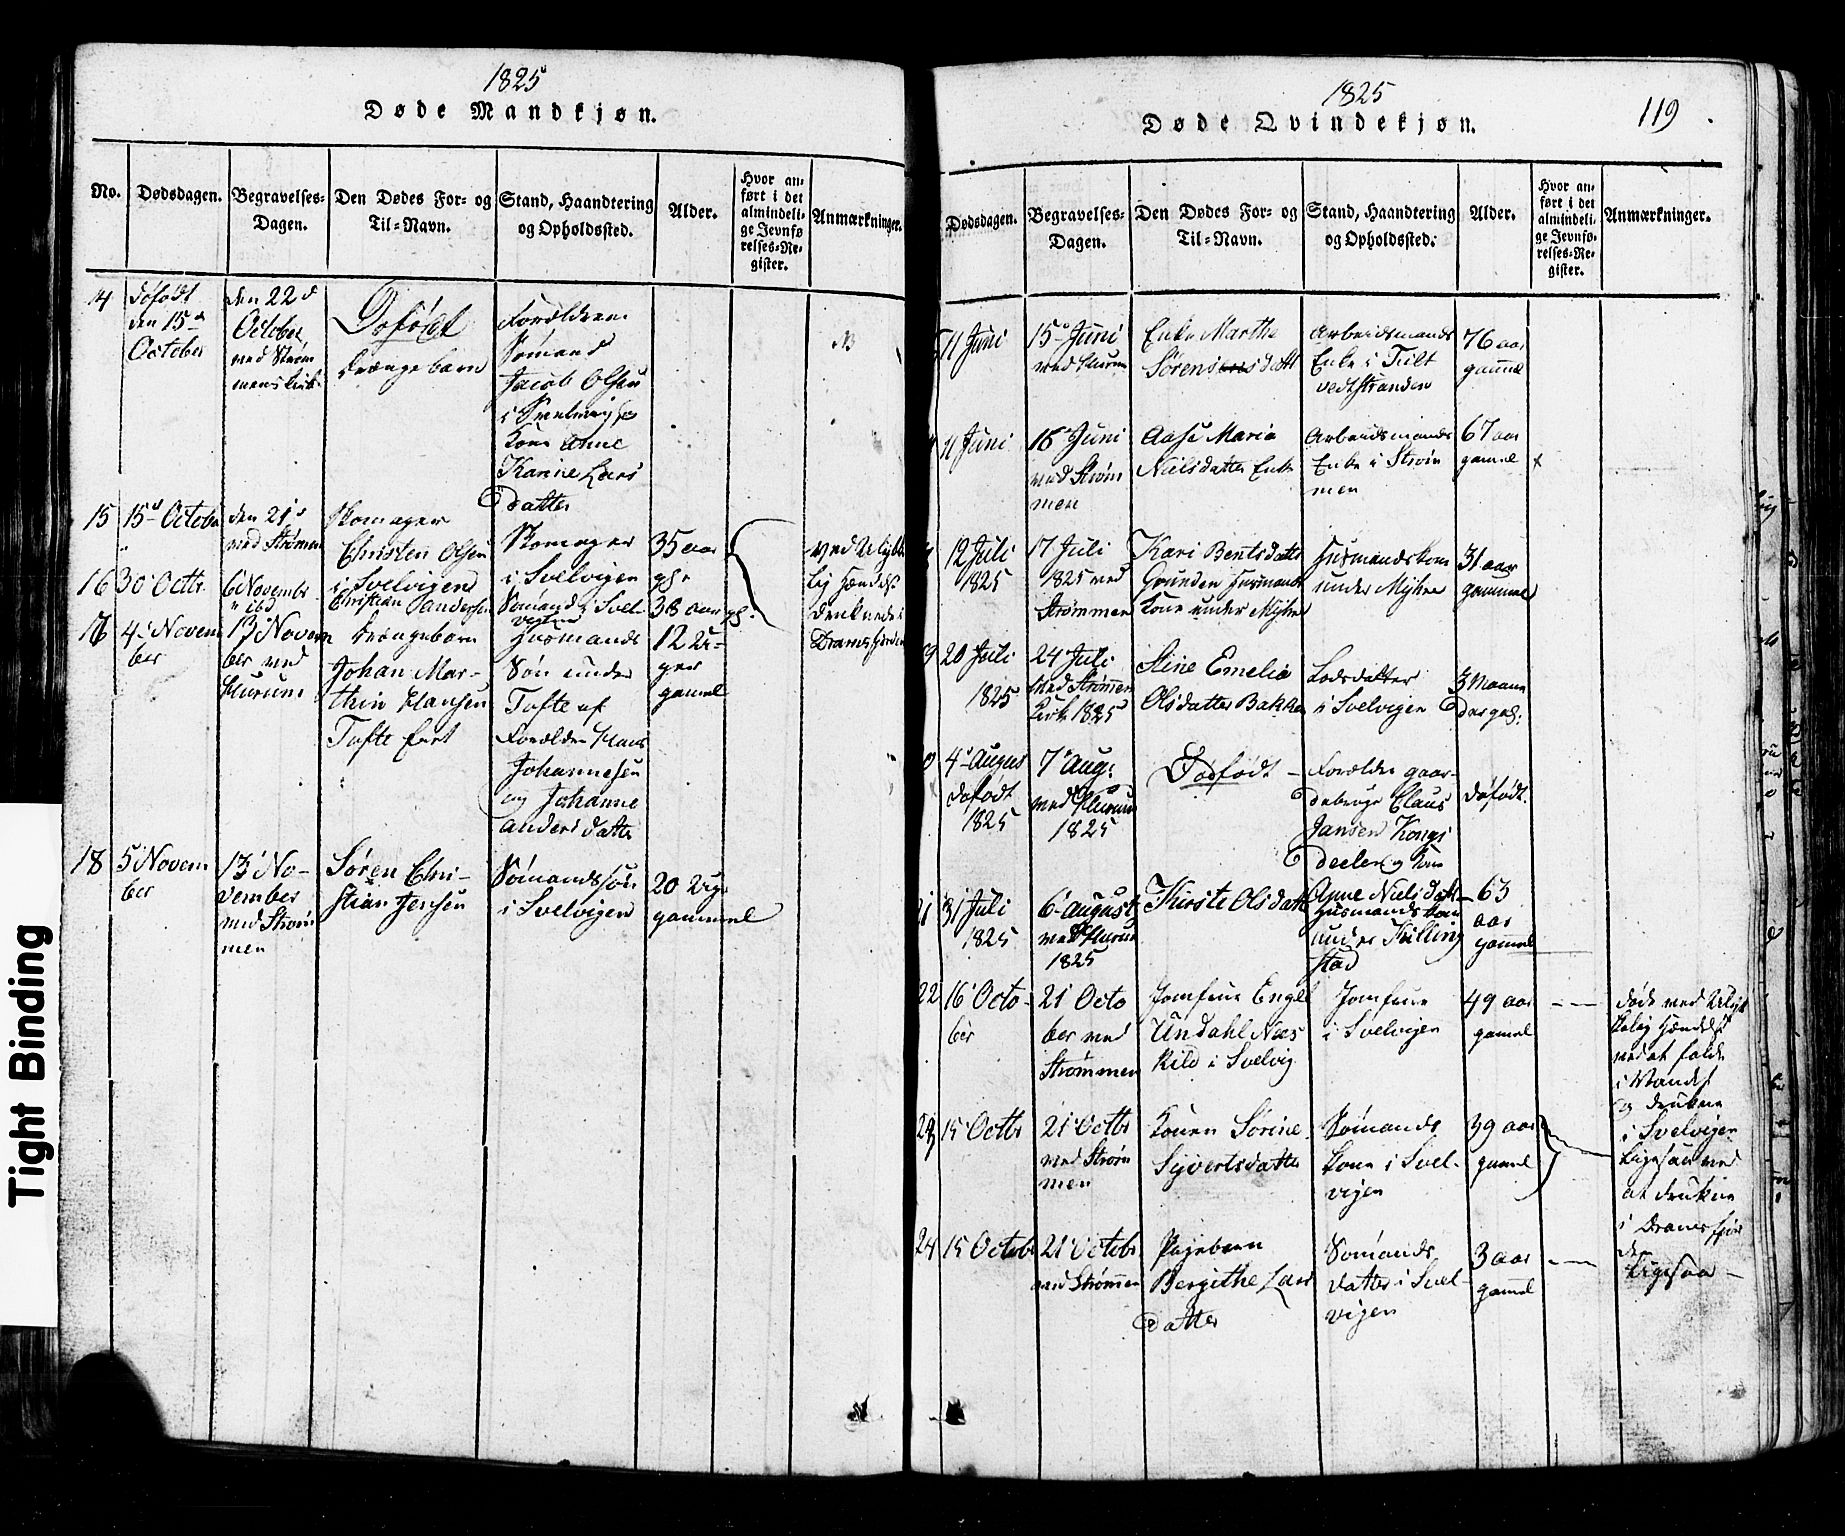 1825
Døde Mandkjøn.
No.
Dødsdagen.
Begravelses-
Dagen.
Den Dødes For- og
Til-Navn.
Stand, Haandtering
og Opholdssted.
Alder.
Hvor an-
ført i det
almindeli-
ge Jevnfø-
relses-Re-
gister.
Anmærkninger.
14
døfødt
den 15d
October
den 22d
October
ved Strøm
mens Kirk
Døfødt
Drængebarn
Forældrene
Sømand
Jacob Olsen
i Svelvigen
Kone Anne
Karine Lars
Datter
15
15d October
den 21d
ved Strømen
Skomager
Christen Olsen
i Svelvigen
Skomager
i Svelvigen
35 aar
gl.
ved Ulykke
lig Hændelse
druknede i
Drams fjorden
16
30 Octbr
6 Novembr
ibd
Christian Andersen
Sømand i Svel-
vigen
38 aar gl.
17
4 Novem
ber
13 Novem
ber ved
Hurum
Drængebarn
Johan Mar-
thin Hansen
Tofte Eiet
Husmands
Søn under
Tofte af
Forældre Hans
Johannesen
og Johanne
Anders datter
12 U-
ger
gamel
18
5 Novem
ber
13 No-
vember
ved Strøm
men
Søren Chri-
stian Jensen
Sømandssøn
i Svelvigen
20 Uger
gammel
1825
Døde Qvindekjøn.
119
Dødsdagen.
Begravelses-
Dagen.
Den Dødes For- og
Til-Navn.
Stand, Haandtering
og Opholdssted.
Alder.
Hvor an-
ført i det
almindeli-
ge Jevnfø-
relses-Re-
gister.
Anmærkninger.
11 Juni
15 Juni
ved Hurum
Enke Marthe
Sørensdatt
Arbeidsmands
Enke i Tult
vedstranden
76 aar
gammel
11 Juni
16 Juni
ved Strøm
men
Aase Maria
Nielsdatter Enke
Arbeidsmands
Enke i Strøm
men
67 aar
gamel
12 Juli
1825
17 Juli
1825 ved
Strømmen
Kari Bentsdatter
Grunden Husmands
Kone under Myhre
Husmandskone
under Myhre
31 aar
gammel
20 Juli
1825
24 Juli
ved Strømmen
Kirke 1825
Stine Emelia
Olsdatter Bakke
Lodsdatter
i Svelvigen
3 Maane
der gl:
4 August
døfødt
1825
7 Aug:
ved Hurum
1825
Dødfødt
Forældre gaar-
debruger Claus
Jansen Kongs
deelen og Kone
Anne Nielsdatt
døfødt.
21
31 Juli
1825
6 August
ved Hurum
1825
Kirste Olsdatt
Husmandskone
under Killing
stad
63
aar
gamel
22
16 Octo-
ber
21 Octo
ber ved
Strømmen
Jomfrue Engel
Undahl Næs
Kild i Svelvig
Jomfrue
i Svelvigen
49 aar
gamel
døde ved Ulyk
kelig Hændelse
ved at falde
i Vandet
og drukne
i Svelvigen
23
15 Octbr
21 Octbr
ved Strøm
men
Konen Sørine
Syvertsdatter
Sømands
Kone i Svel-
vigen
39 aar
gamel
Ligesaa ved
at drukne
i Dramsfjor
den
24
15 Octobr
21 Octobr
ved Strømmen
Pigebarn
Bergithe Lars
datter
Sømands
datter i Svel-
vigen
3 aar
gamel
Ligesaa